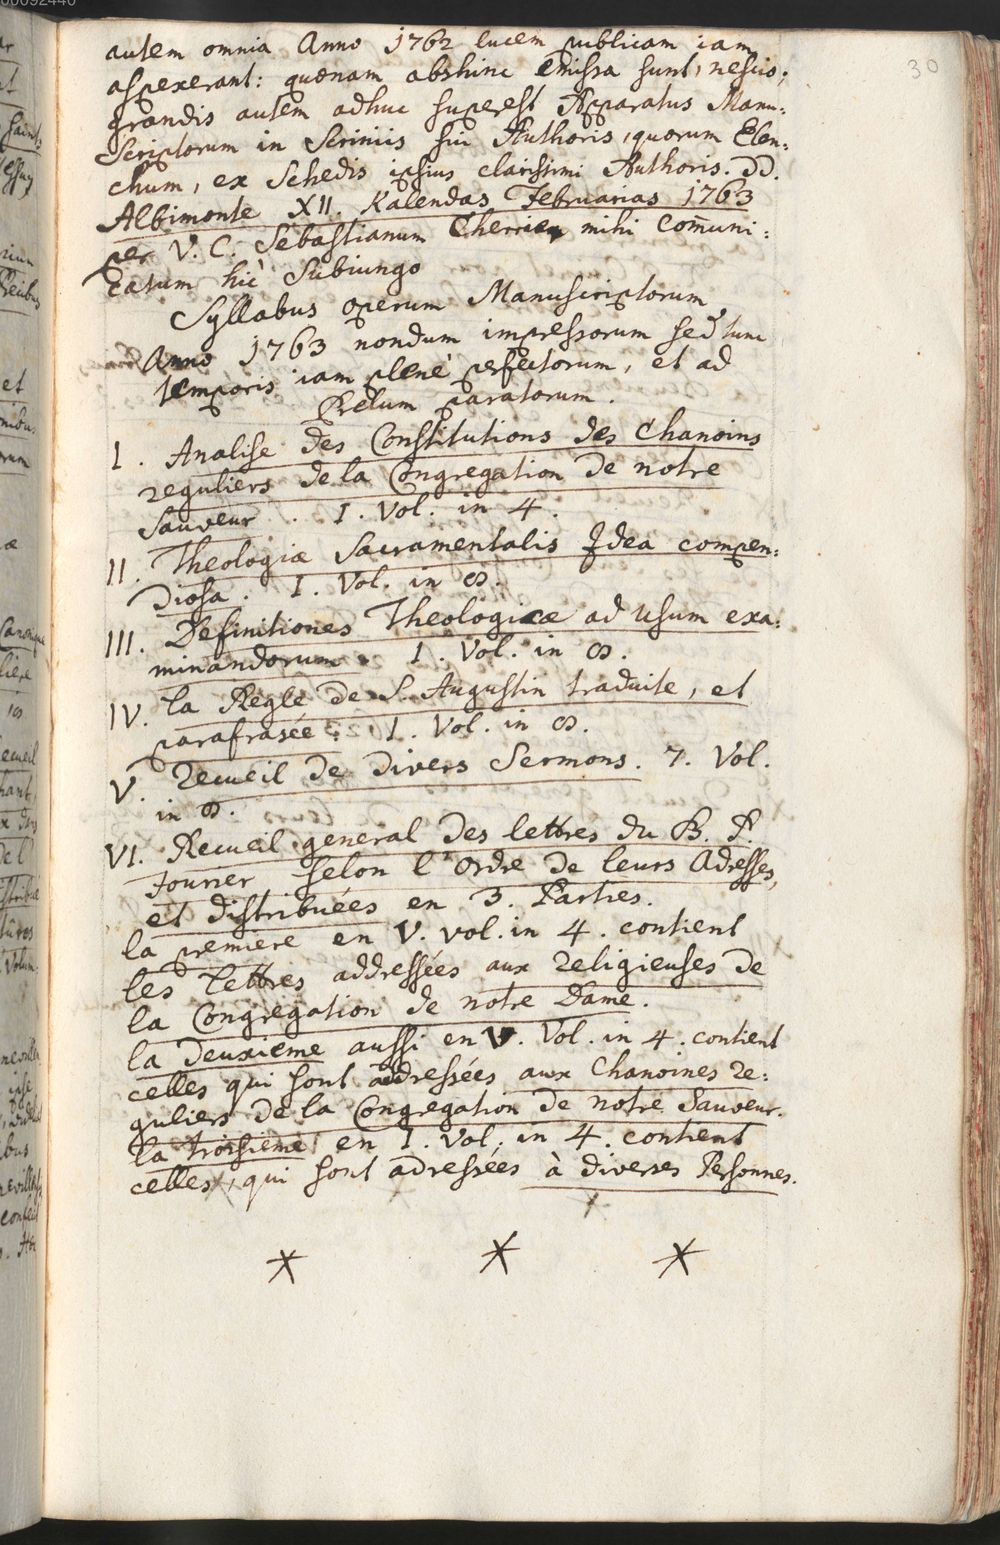 30
autem omnia Anno 1762 lucem publicam iam
aspexerant: quænam abshinc emissa sunt, nescio;
grandis autem adhuc superest Apparatus Manu-
scriptorum in Scriniis sui Authoris, quorum Elen-
chum, ex Schedis ipsius clarissimi Authoris. DD.
Albimonte XII. Kalendas Februarias 1763
per V. C. Sebastianum mihi Com̄uni-
catum hic Subiungo
Syllabus operum Manuscriptorum
Anno 1763 nondum impressorum sed tunc
temporis iam plenè perfectorum, et ad
Prelum paratorum.
I. Analise des Constitutions des Chanoins
reguliers de la Congregation de notre
Sauveur. I. Vol. in 4.
II. Theologiæ Sacramentalis Idea compen-
diosa. I. Vol. in 8.
III. Definitiones Theologicæ ad Usum exa-
minandorum. I. Vol. in 8.
IV. la Regle de S. Augustin traduite, et
parafrasée. I. Vol. in 8.
V. Recueil de divers Sermons. 7. Vol.
in 8.
VI. Recueil general des lettres du B. P.
Fourier selon l'Ordre de leurs Adresses,
et distribuées en 3. Parties.
la premiere en V. vol. in 4. contient
les lettres addressées aux Religieuses de
la Congregation de notre Dame.
la deuxieme aussi en V. Vol. in 4. contient
celles qui sont addressées aux Chanoines re-
guliers de la Congregation de notre Sauveur.
la troisieme en I. Vol. in 4. contient
celles, qui sont adressées à diverses Personnes.